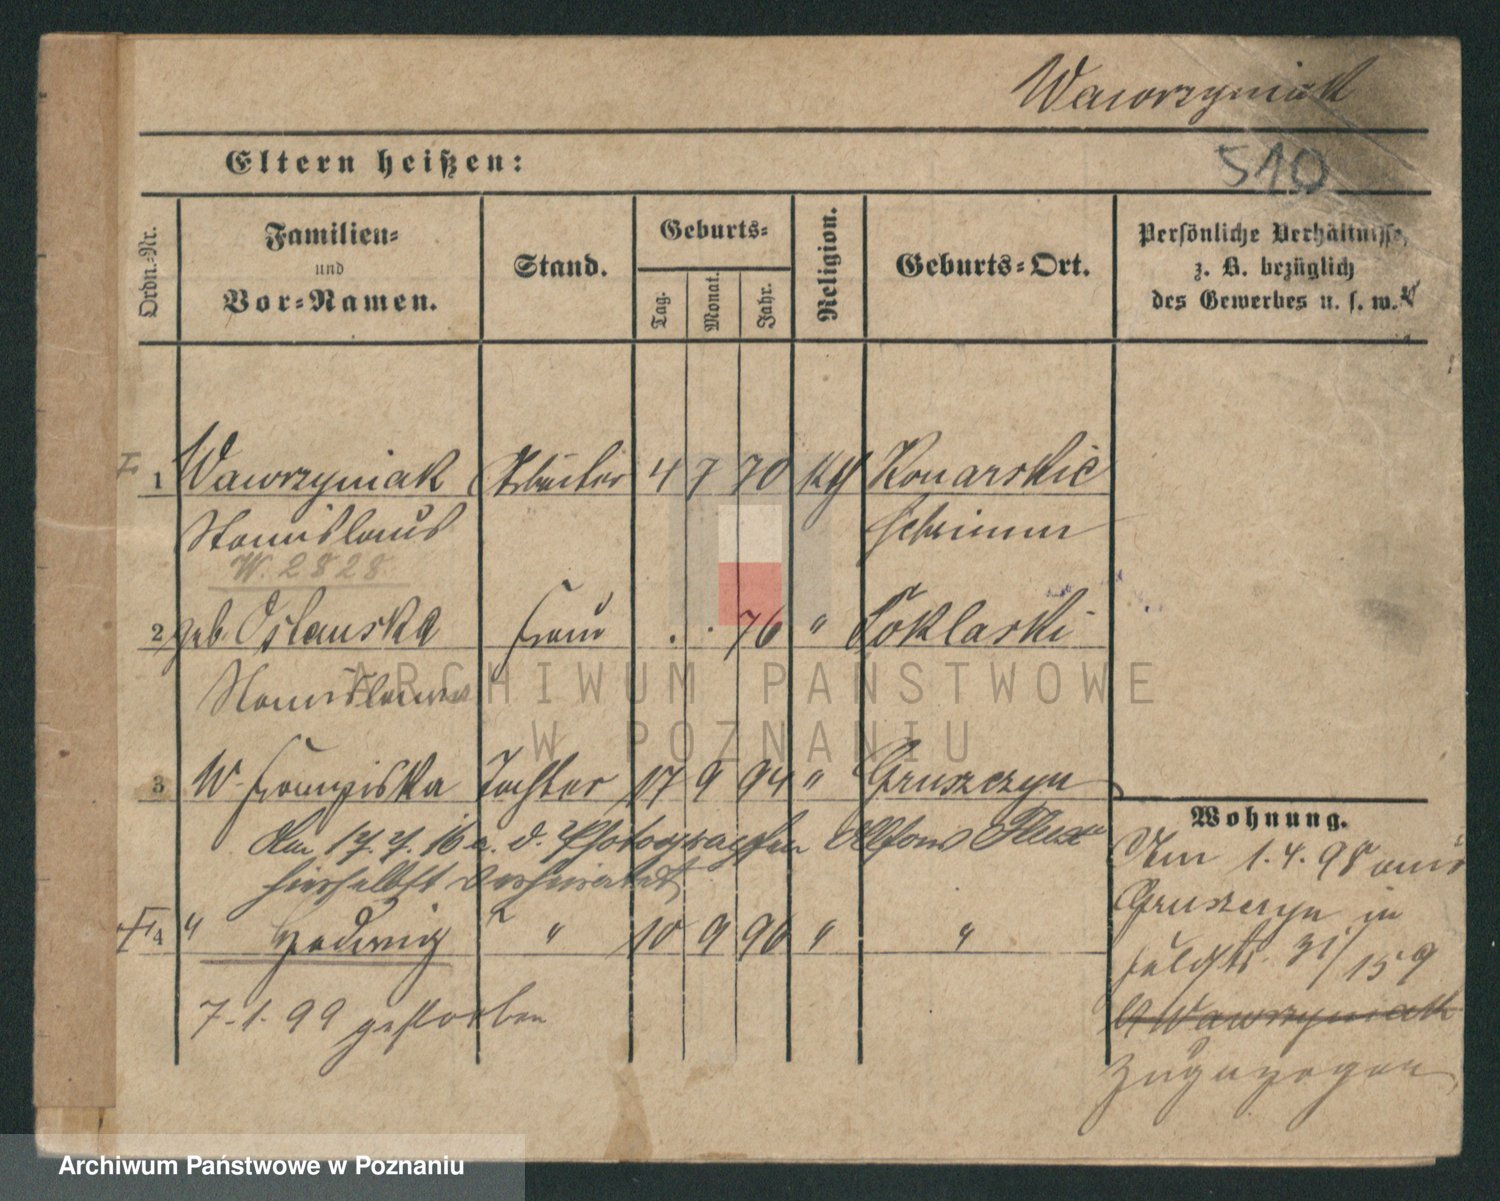 Wawrzyniak
510
Eltern heißen:
Ordn.-Nr.
Familien-
und
Vor-Namen.
Stand.
Geburts-
Tag.
Monat.
Jahr.
Religion.
Geburts-Ort.
Persönliche Verhältnisse,
z. B. bezüglich
des Gewerbes u. s. w.
1 Wawrzyniak Arbeiter 4 7 70 Konarskie
Stanislaus Schrimm
W. 2828
2 geb. Oslanska Frau . . 76 "
Stanislawa
3 W. Franziska Tochter 17 9 94 " Gruszczyn
Am 17.7.16 a. d. Photographen Alfons
hierselbst verheiratet
4 " Hedwig " 10 9 96 " "
7.1.99 gestorben
Wohnung.
Am 1.4.98 aus
Gruszczyn in
31/159
Wawrzyniak
zugezogen
ARCHIWUM PAŃSTWOWE
W POZNANIU
Archiwum Państwowe w Poznaniu